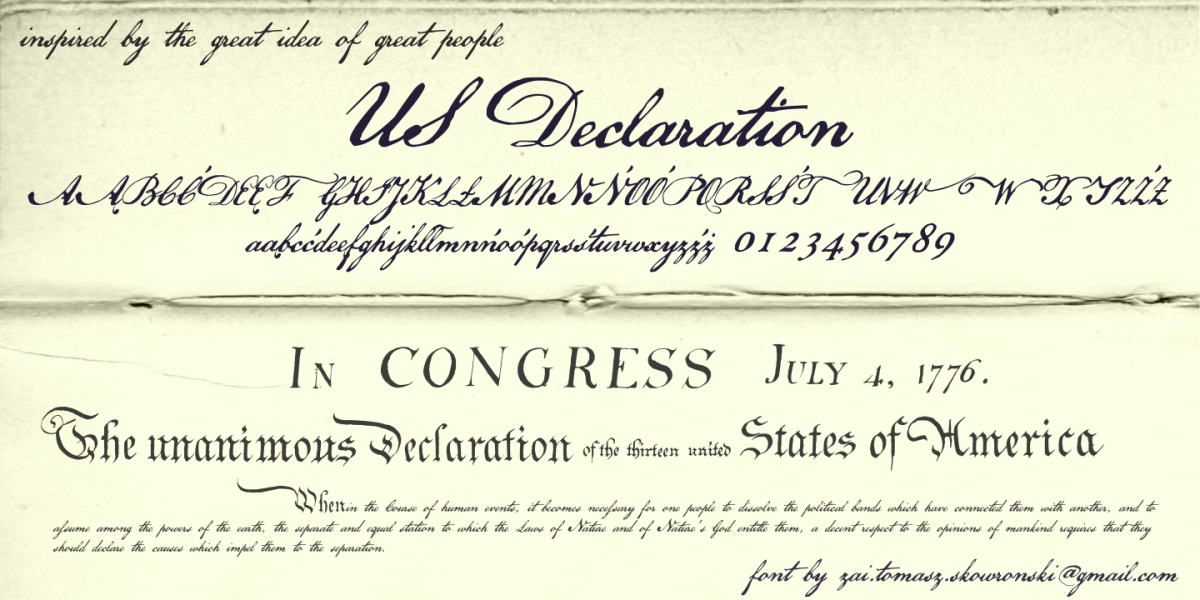 inspired by the great idea of great people
US Declaration
AĄBCĆDEĘF GHIJKLŁMNŃOÓPQRSŚT UVW W X YZŹŻ
aąbcćdeęfghijklłmnńoópqrsśtuvwxyzźż 0123456789
In CONGRESS July 4, 1776.
The unanimous Declaration of the thirteen united States of America
When in the Course of human events, it becomes neceſsary for one people to dissolve the political bands which have connected them with another, and to
aſsume among the powers of the earth, the separate and equal station to which the Laws of Nature and of Nature's God entitle them, a decent respect to the opinions of mankind requires that they
should declare the causes which impel them to the separation.
font by zai.tomasz.skowronski@gmail.com